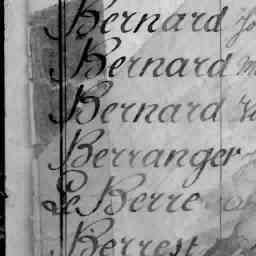 Bernard
Bernard
Bernard
Berranger
Le Berre
Berrest